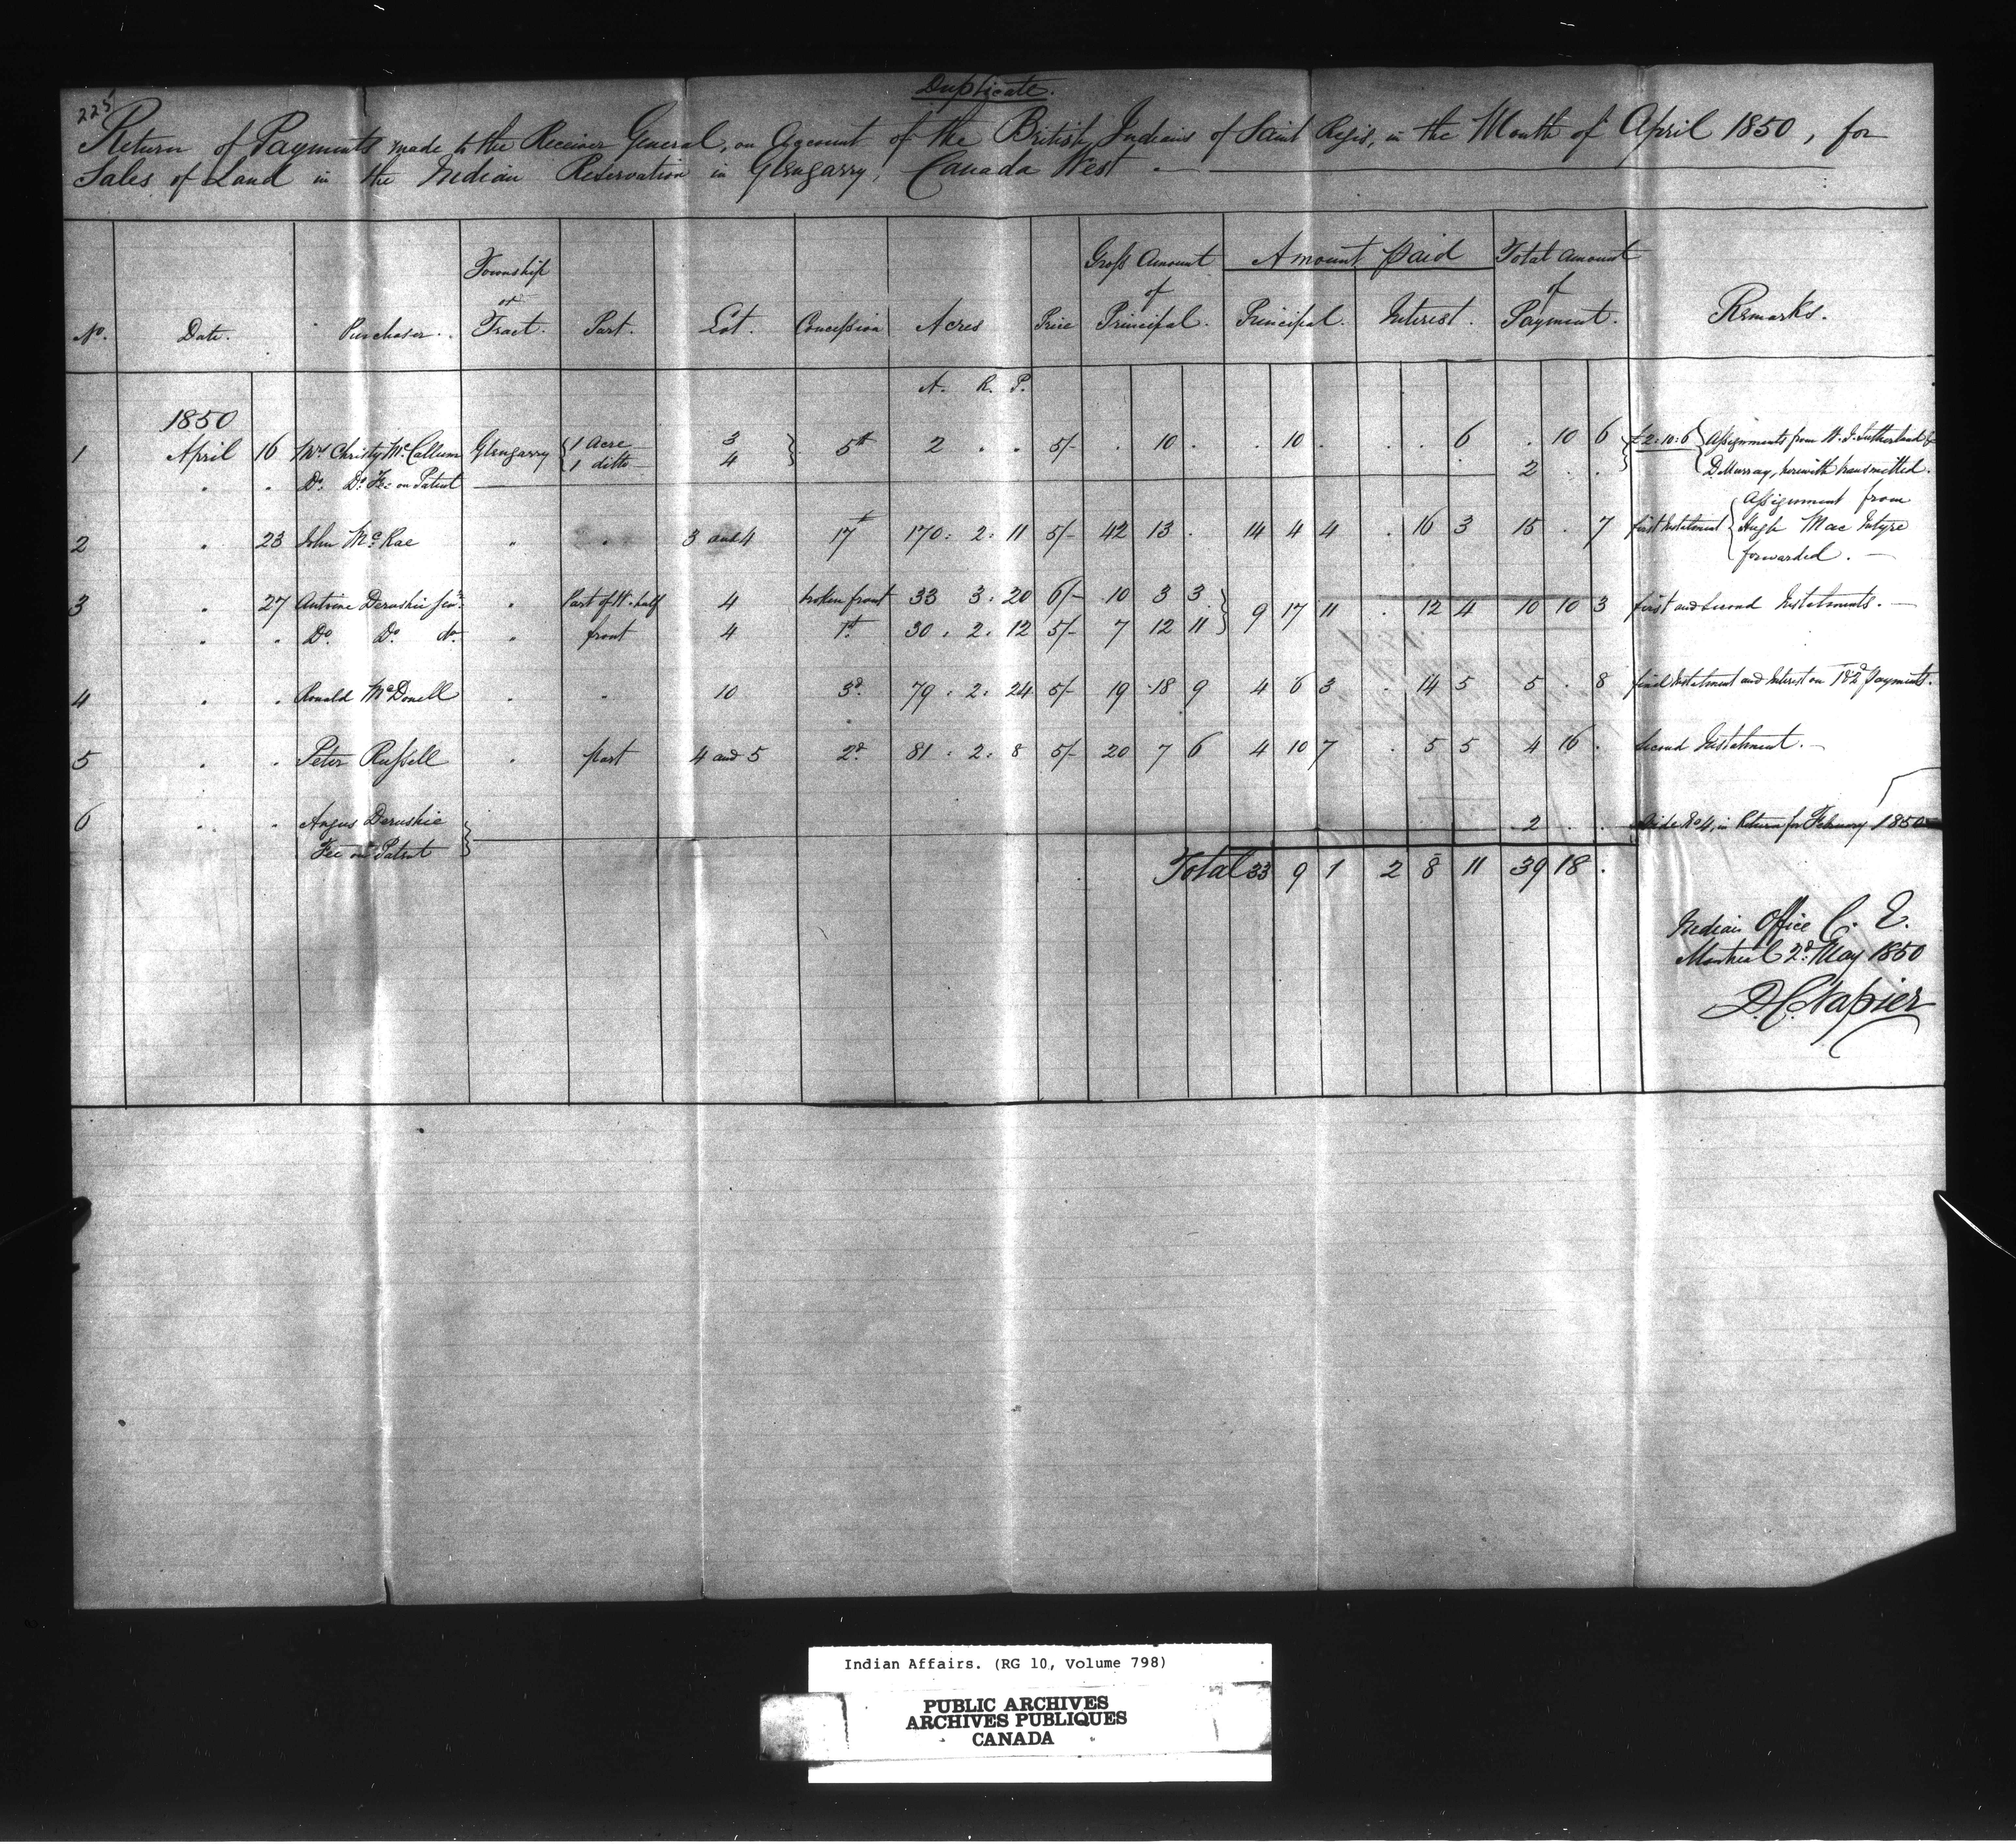 Duplicate.
225
Return of Payments made to the Receiver General, on Account of the British Indians of Saint Regis, in the Month of April 1850, for
Sales of Land in the Indian Reservation in Glengarry, Canada West.
No. Date. Purchaser. Township or Tract. Part. Lot. Concession Acres Price Gross Amount of Principal. Amount paid Principal. Interest. Total Amount of Payment. Remarks.
A. R. P.
1850
1 April 16 Mrs Christy McCallum Glengarry { 1 Acre 3 } 5th 2 . . 5/- . 10 . . 10 . . . 6 . 10 6 } £2:10:6 { Assignments from W. J. Sutherland &
1 ditto 4 2 . . D. Murray, herewith transmitted.
. . Do. Do. Fee on Patent
2 . 23 John McRae " . 3 and 4 1st 170. 2. 11 5/- 42 13 . 14 4 4 . 16 3 15 . 7 first Instalment { Assignment from
Hugh Mac Intyre
forwarded.
3 . 27 Antoine Derushie Senr. " Part of W. half 4 broken front 33 3. 20 6/- 10 3 3 } 9 17 11 . 12 4 10 10 3 first and second Instalments.
. . Do. Do. do. " front 4 1st. 30. 2. 12 5/- 7 12 11
4 . . Ronald McDonell . " 10 3d. 79. 2. 24 5/- 19 18 9 4 6 3 . 14 5 5 . 8 final Instalment and Interest on 1 & 2d Payments.
5 . . Peter Russell . part 4 and 5 2d. 81. 2. 8 5/- 20 7 6 4 10 7 . 5 5 4 16 . Second Instalment.
6 . . Angus Derushie } 2 . . Vide No 4, in Return for February 1850
Fee on Patent
Total 33 9 1 2 8 11 39 18 .
Indian Office C. E.
Montreal 2d. May 1850
D. C. Napier
Indian Affairs. (RG 10, Volume 798)
PUBLIC ARCHIVES
ARCHIVES PUBLIQUES
CANADA